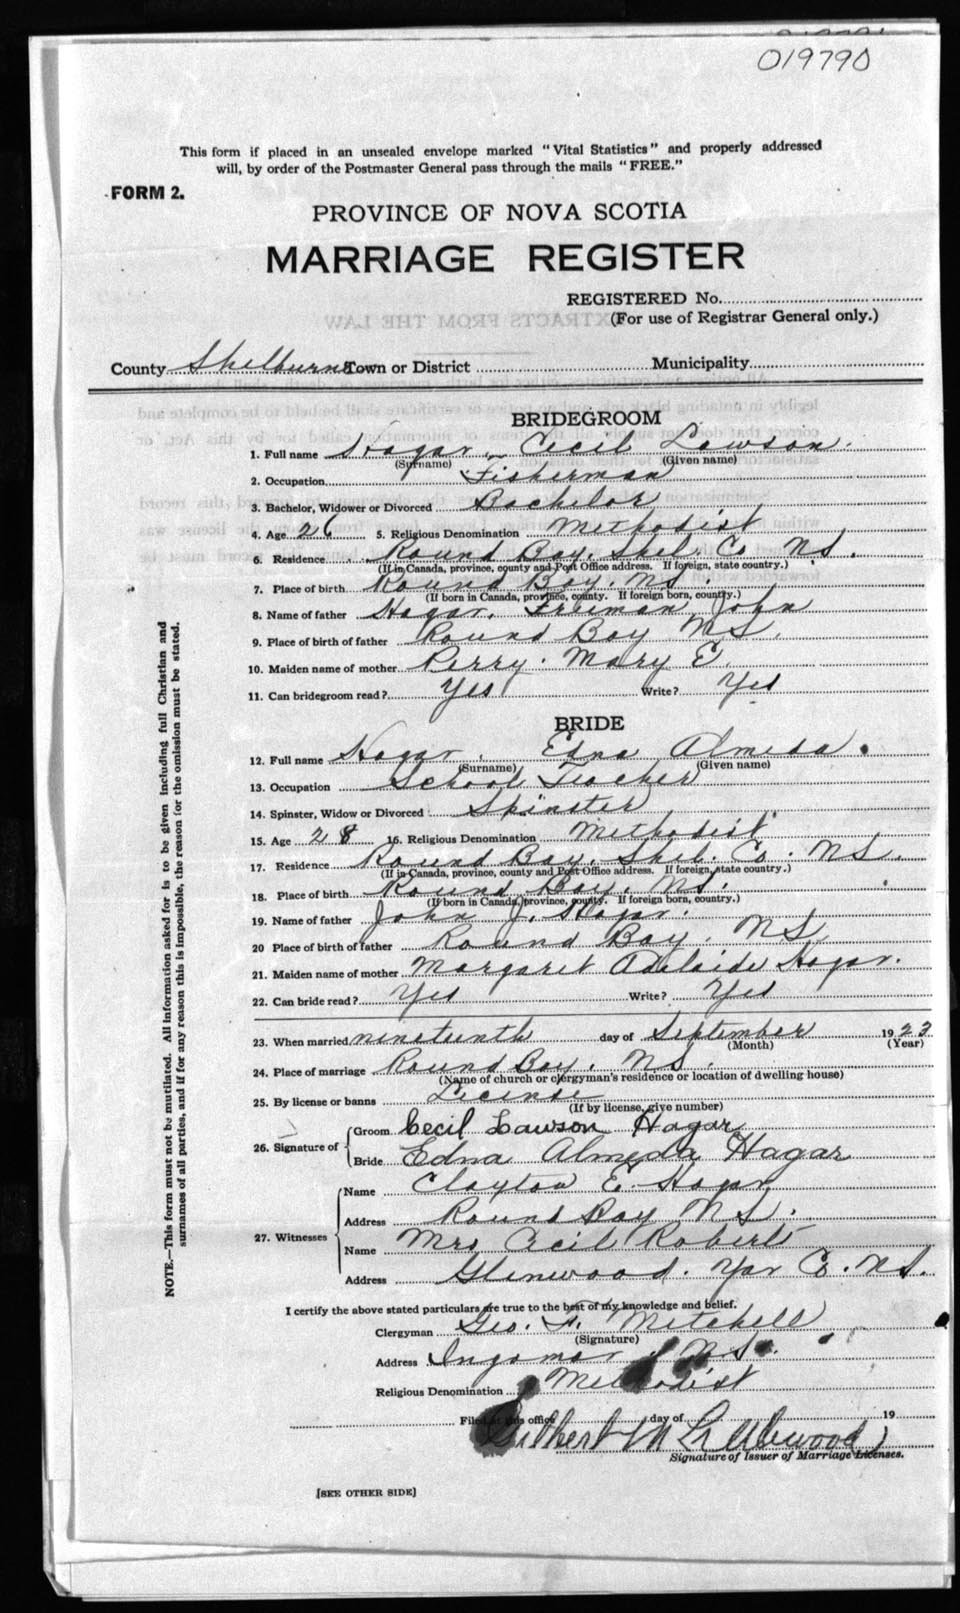 019790
This form if placed in an unsealed envelope marked "Vital Statistics" and properly addressed
will, by order of the Postmaster General pass through the mails "FREE."
FORM 2.
PROVINCE OF NOVA SCOTIA
MARRIAGE REGISTER
REGISTERED No.
(For use of Registrar General only.)
County Shelburne Town or District Municipality
BRIDEGROOM
1. Full name Hagar, Cecil Lawson.
(Surname) (Given name)
2. Occupation Fisherman
3. Bachelor, Widower or Divorced Bachelor
4. Age 26 5. Religious Denomination Methodist
6. Residence Round Bay. Shel. Co. NS.
(If in Canada, province, county and Post Office address. If foreign, state country.)
7. Place of birth Round Bay. NS.
(If born in Canada, province, county. If foreign born, country.)
8. Name of father Hagar, Freeman John
9. Place of birth of father Round Bay NS.
10. Maiden name of mother Perry. Mary E.
11. Can bridegroom read? Yes Write? Yes
BRIDE
12. Full name Hagar. Edna Almeda.
(Surname) (Given name)
13. Occupation School Teacher
14. Spinster, Widow or Divorced Spinster
15. Age 28 16. Religious Denomination Methodist
17. Residence Round Bay. Shel. Co. NS.
(If in Canada, province, county and Post Office address. If foreign, state country.)
18. Place of birth Round Bay. NS.
(If born in Canada, province, county. If foreign born, country.)
19. Name of father John J. Hagar.
20 Place of birth of father Round Bay. NS
21. Maiden name of mother Margaret Adelaide Hagar.
22. Can bride read? Yes Write? Yes
23. When married nineteenth day of September 1923
(Month) (Year)
24. Place of marriage Round Bay. NS.
(Name of church or clergyman's residence or location of dwelling house)
25. By license or banns License
(If by license, give number)
26. Signature of Groom Cecil Lawson Hagar
Bride Edna Almeda Hagar
27. Witnesses Name Clayton E. Hagar
Address Round Bay NS.
Name Mrs Cecil Roberts
Address Glenwood. Yar Co. NS.
I certify the above stated particulars are true to the best of my knowledge and belief.
Clergyman Geo. F. Mitchell
(Signature)
Address Ingomar NS.
Religious Denomination Methodist
Filed at this office day of 19
Gilbert
Signature of Issuer of Marriage Licenses.
[SEE OTHER SIDE]
NOTE.—This form must not be mutilated. All information asked for is to be given including full Christian and
surnames of all parties, and if for any reason this is impossible, the reason for the omission must be stated.